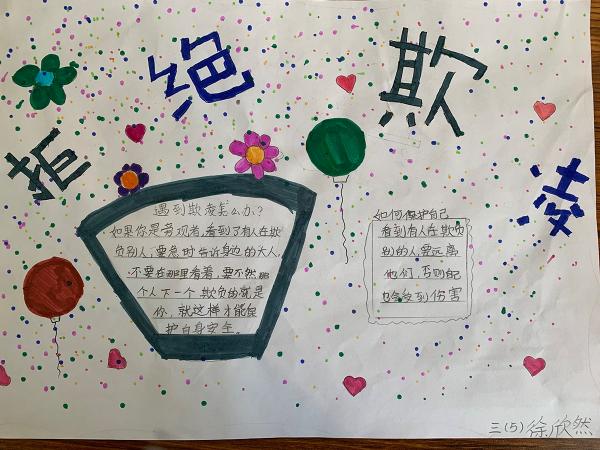 拒绝欺凌
遇到欺凌怎么办?
如果你是旁观者,看到了有人在欺
负别人,要急时告诉身边的大人,
不要在那里看着,要不然那
个人下一个欺负的就是
你,就这样才能保
护自身安全。
如何保护自己
看到有人在欺负
别的人,要远离
他们,否则自己
也会受到伤害
三(5)徐欣然